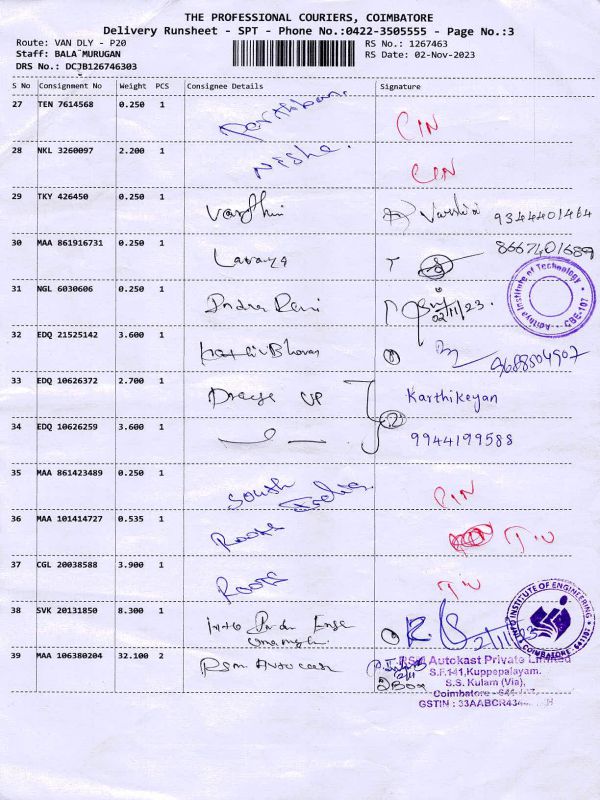 THE PROFESSIONAL COURIERS, COIMBATORE
Delivery Runsheet - SPT - Phone No.:0422-3505555 - Page No.:3
Route: VAN DLY - P20
RS No.: 1267463
Staff: BALA MURUGAN
RS Date: 02-Nov-2023
DRS No.: DCJB126746303
S No Consignment No Weight PCS Consignee Details Signature
27 TEN 7614568 0.250 1 Parthiban. CIN
28 NKL 3260097 2.200 1 Nisha. CIN
29 TKY 426450 0.250 1 Varshini Varshini 9344401464
30 MAA 861916731 0.250 1 Lavanya 8667401689
31 NGL 6030606 0.250 1 Indra Rani 02/11/23.
Aditya Institute of Technology CBE-107
32 EDQ 21525142 3.600 1 9688504907
33 EDQ 10626372 2.700 1 UP Karthikeyan
34 EDQ 10626259 3.600 1 9944199588
35 MAA 861423489 0.250 1 South India. PIN
36 MAA 101414727 0.535 1 Roots
37 CGL 20038588 3.900 1 Roots
38 SVK 20131850 8.300 1 Info
INFO INSTITUTE OF ENGINEERING
COIMBATORE - 641107
39 MAA 106380204 32.100 2 RSM Autocast
RSM Autokast Private Limited
S.F.141,Kuppepalayam.
2 Box
S.S. Kulam (Via),
Coimbatore
GSTIN : 33AABCR